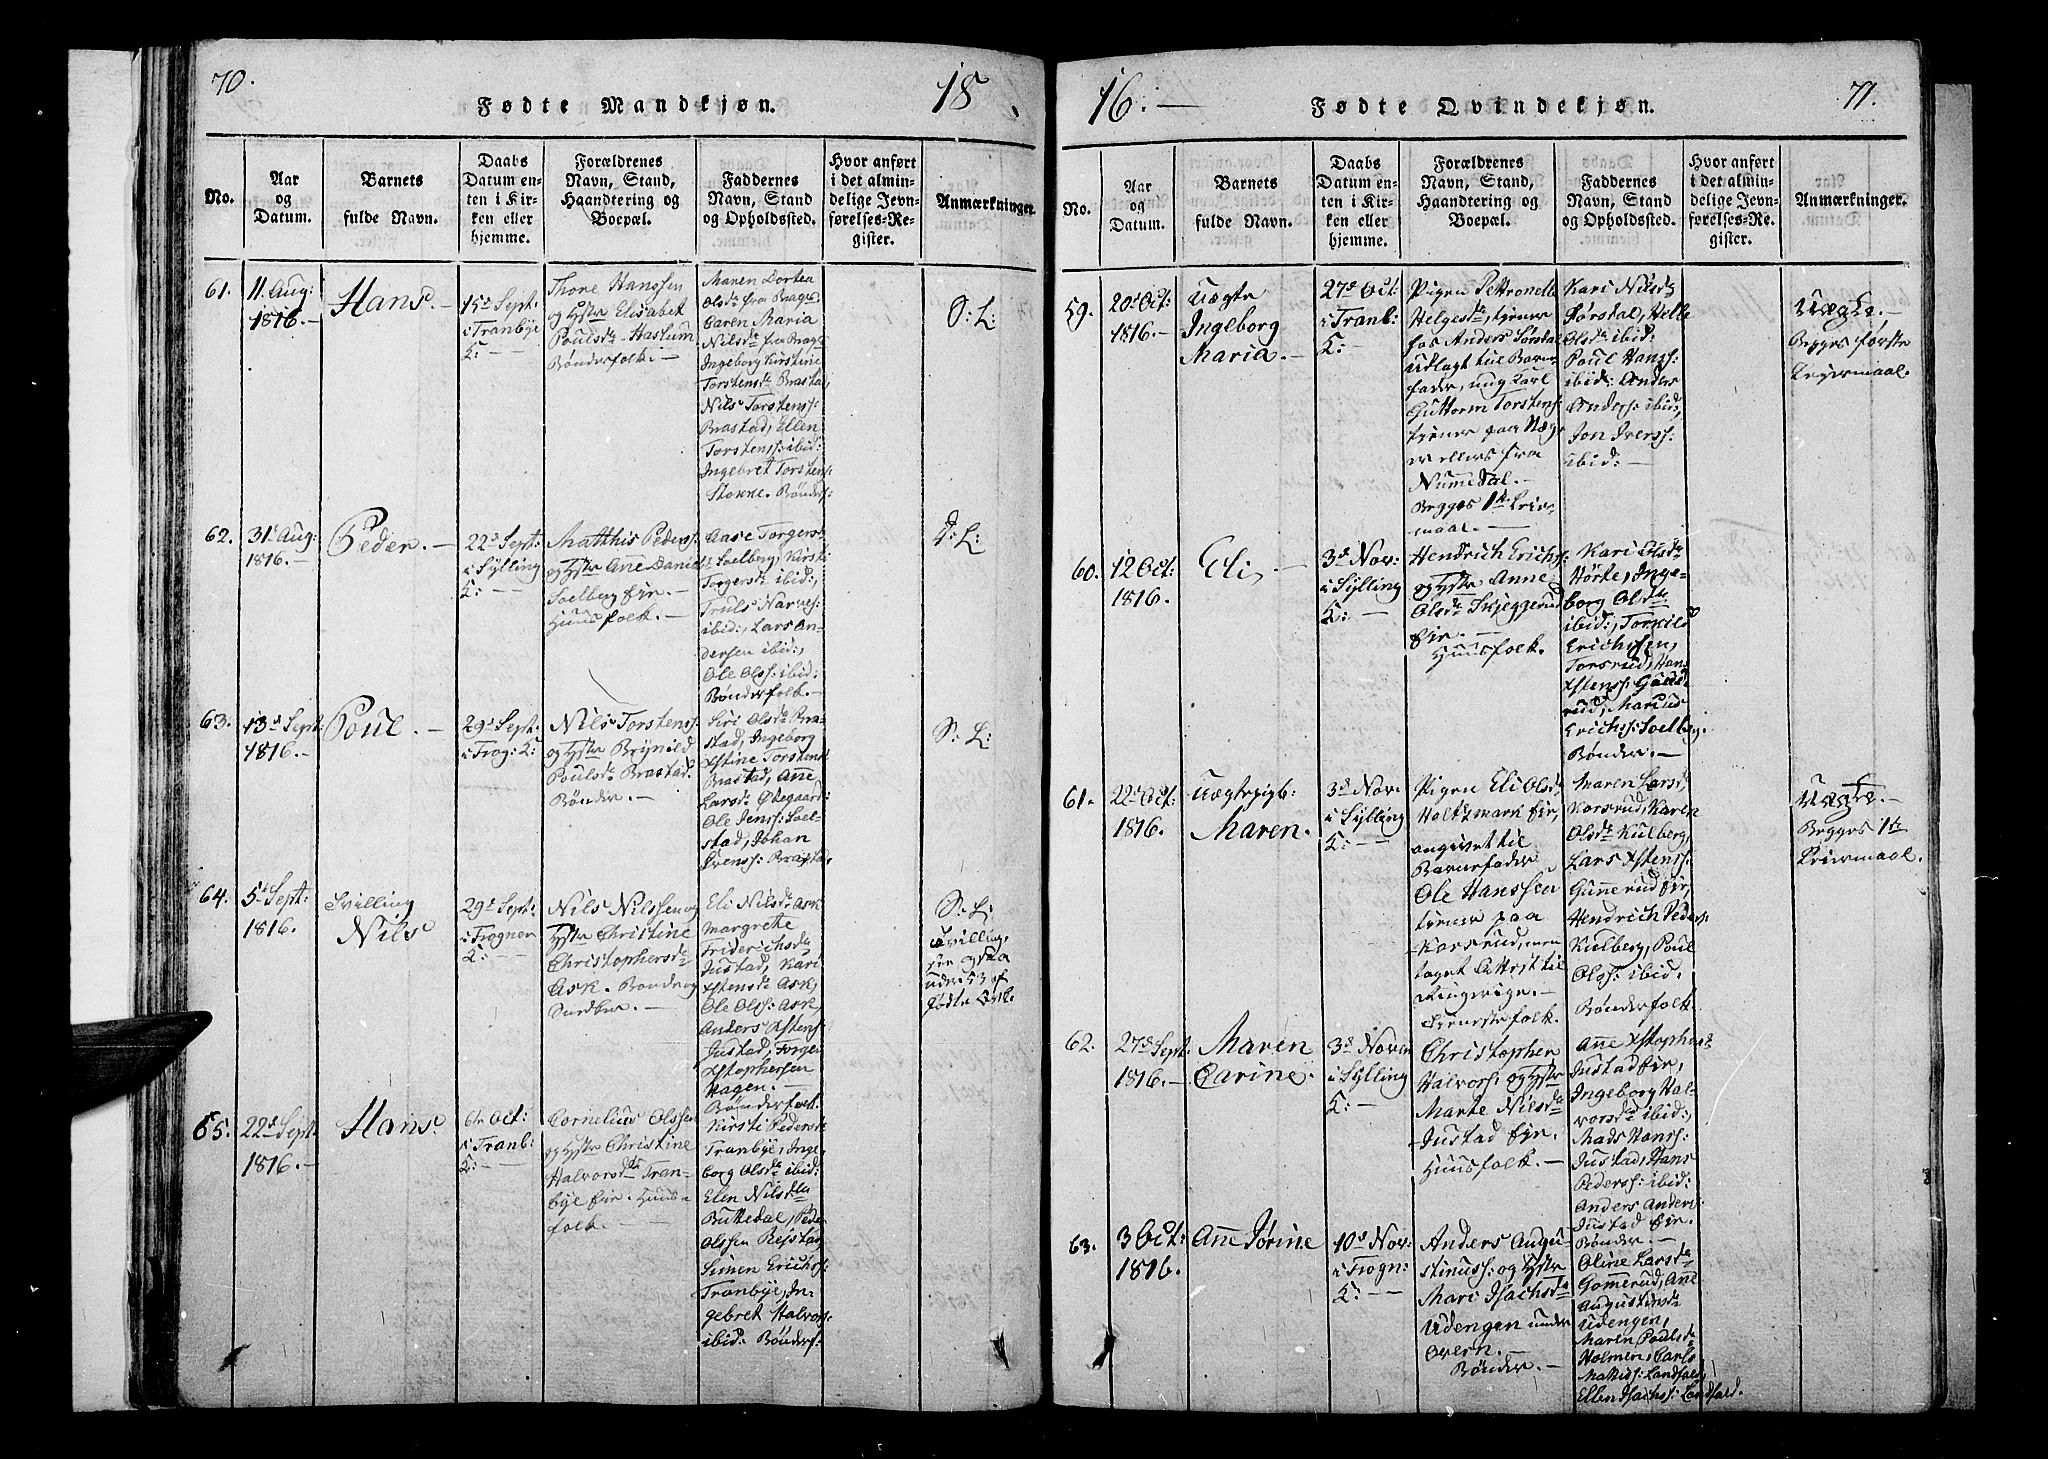 70.
18
Fødte Mandkjøn.
No.
Aar
og
Datum.
Barnets
fulde Navn.
Daabs
Datum en-
ten i Kir-
ken eller
hjemme.
Forældrenes
Navn, Stand,
Haandtering og
Boepæl.
Faddernes
Navn, Stand
og Opholdssted.
Hvor anført
i det almin-
delige Jevn-
førelses-Re-
gister.
Anmærkninger.
61.
11. Aug:
1816.—
Hans.—
15d Sept:
i Tranbye
K:——
Thore Hanssen
og Hstr Elisabet
Poulsdr Haslum
Bønderfolk.—
Maren Dortea
Olsdr fra Brage
Caren Maria
Nilsdr fra Brage
Ingeborg Kirstine
Torstensdr Brastad,
Nils Torstens:
Brastad, Ellen
Torstenss: ibid:
Ingebret Torstens:
Stokke. Bønderf:
S: L:
62.
31d Aug:
1816.—
Peder.—
22d Sept:
i Sylling
K:——
Matthis Peders:
og Hstr Ane Daniels
Soelberg Eir.—
Huusfolk.—
Aase Torgers
Soelberg, Kirsti
Torgersdr ibid:
Truls Narves:
ibid:, Lars An-
dersen ibid:,
Ole Olss: ibid:
Bønderfolk.—
S: L:
63.
13d Sept:
1816.—
Poul.—
29d Sept:
i Trog: K:
Nils Torstenss:
og Hstr Brynild
Poulsdr Brastad.
Bønder.—
Siri Olsdr Bra-
stad, Ingeborg
Xstine Torstens
Brastad, Anne
Larsdr Ødegaard:
Ole Jenss: Soel-
stad, Johan
Evenss: Brastad.
S: L:
64.
5d Sept:
1816.
Tvilling
Nils
29d Sept:
i Trogner
K:——
Nils Nilssen og
Hstr Christine
Christophersdr
Ask. Bonde og
Eli Nilsdr Ask
Margrete
Friderichsdr
Justad, Kari
Xstensdr Ask,
Ole Olss: Ask,
Anders Xstens:
Justad, Torger
Xstophersen
Hagen.—
Bønderfolk.
S: L:
Tvilling,
under 53 af
fødte Qvik.
65.
22d Sept:
1816.—
Hans.
6te Oct:
i Tranb:
K:——
Cornelius Olssen
og Hstr Christine
Halvorsdr Tran-
bye Eir. Huus-
folk.—
Kirsti Pedersdr
Tranbye, Inge-
borg Olsdr ibid:
Elen Nilsdr
Buttedal, Peder
Olssen Rejstad,
Simen Erichss:
Tranbye, In-
gebret Halvors:
ibid: Bønderf:
16.—
71.
Fødte Qvindekjøn.
No.
Aar
og
Datum.
Barnets
fulde Navn.
Daabs
Datum en-
ten i Kir-
ken eller
hjemme.
Forældrenes
Navn, Stand,
Haandtering og
Boepæl.
Faddernes
Navn, Stand
og Opholdssted.
Hvor anført
i det almin-
delige Jevn-
førelses-Re-
gister.
Anmærkninger.
59.
20d Oct:
1816.—
Uægte
Ingeborg
Maria.—
27d Oct:
i Tranb:
K:——
Pigen Pettronelle
Helgesdr, tjener
hos Anders Sørsdal
udlagt til Barne-
fader, ung Karl
Guttorm Torstens:
tjener paa Hæg
er ellers fra
Numedal.
Begges 1te Leier-
maal.—
Kari Nilsdr
Sørsdal, Helle
Olsdr ibid:
Poul Hanss:
ibid: Anders
Anderss: ibid:,
Jon Iverss:
ibid:—
Uægte.—
Begges første
Leiermaal.
60.
12 Oct:
1816.
Eli,—
3d Nov:
i Sylling
K:——
Hendrich Erichss:
og Hstr Anne
Olsdr Skjeggerud
Eir.—
Huusfolk.
Kari Olsdr
Hørte, Inge-
borg Olsdr
ibid:, Torkild
Erichssen,
Torsrud, Hans
Xstens: Gunne-
rud, Marius
Erichss: Soelberg.
Bønder.—
61.
22d Oct:
1816.
Uægtepigb:
Maren.
3d Nov:
i Sylling
K:——
Pigen Eli Olsdr
Holtsmark Eir,
angivet til
Barnefader
Ole Hanssen
tjener paa
Korsrud, men
taget Attest til
Ringerige.—
Tjenestefolk.
Maren Larsdr
Korsrud, Karen
Olsdr Kulberg,
Lars Xstenss:
Gunnerud Eir,
Hendrich Peders:
Kulberg, Poul
Olss: ibid.
Bønderfolk.
Uægte.—
Begges 1te
Leiermaal.
62.
27d Sept:
1816.—
Maren
Carine.
3d Nov
i Sylling
K:—
Christopher
Halvors: og Hstr
Marte Nilsdr
Justad Eir.
Huusfolk.—
Anne Xstophers
Justad Eir,
Ingeborg Hal-
vorsdr ibid:,
Mads Hanss:
Justad, Hans
Pederss: ibid:
Anders Anders:
Justad Eir.
Bønder.—
63.
3 Oct:
1816.
Anne Jørine
10d Nov:
i Trogn:
K:——
Anders Augu-
stinuss: og Hstr
Mari Isachsdr
Udengen under
Overn.—
Bønder.—
Oline Larsdr
Gomerud, Ane
Augustinsdr
Udengen,
Maren Poulsdr
Holmen, Carls
Mattiss: Landfald,
Ellen Isachss: Landfald.